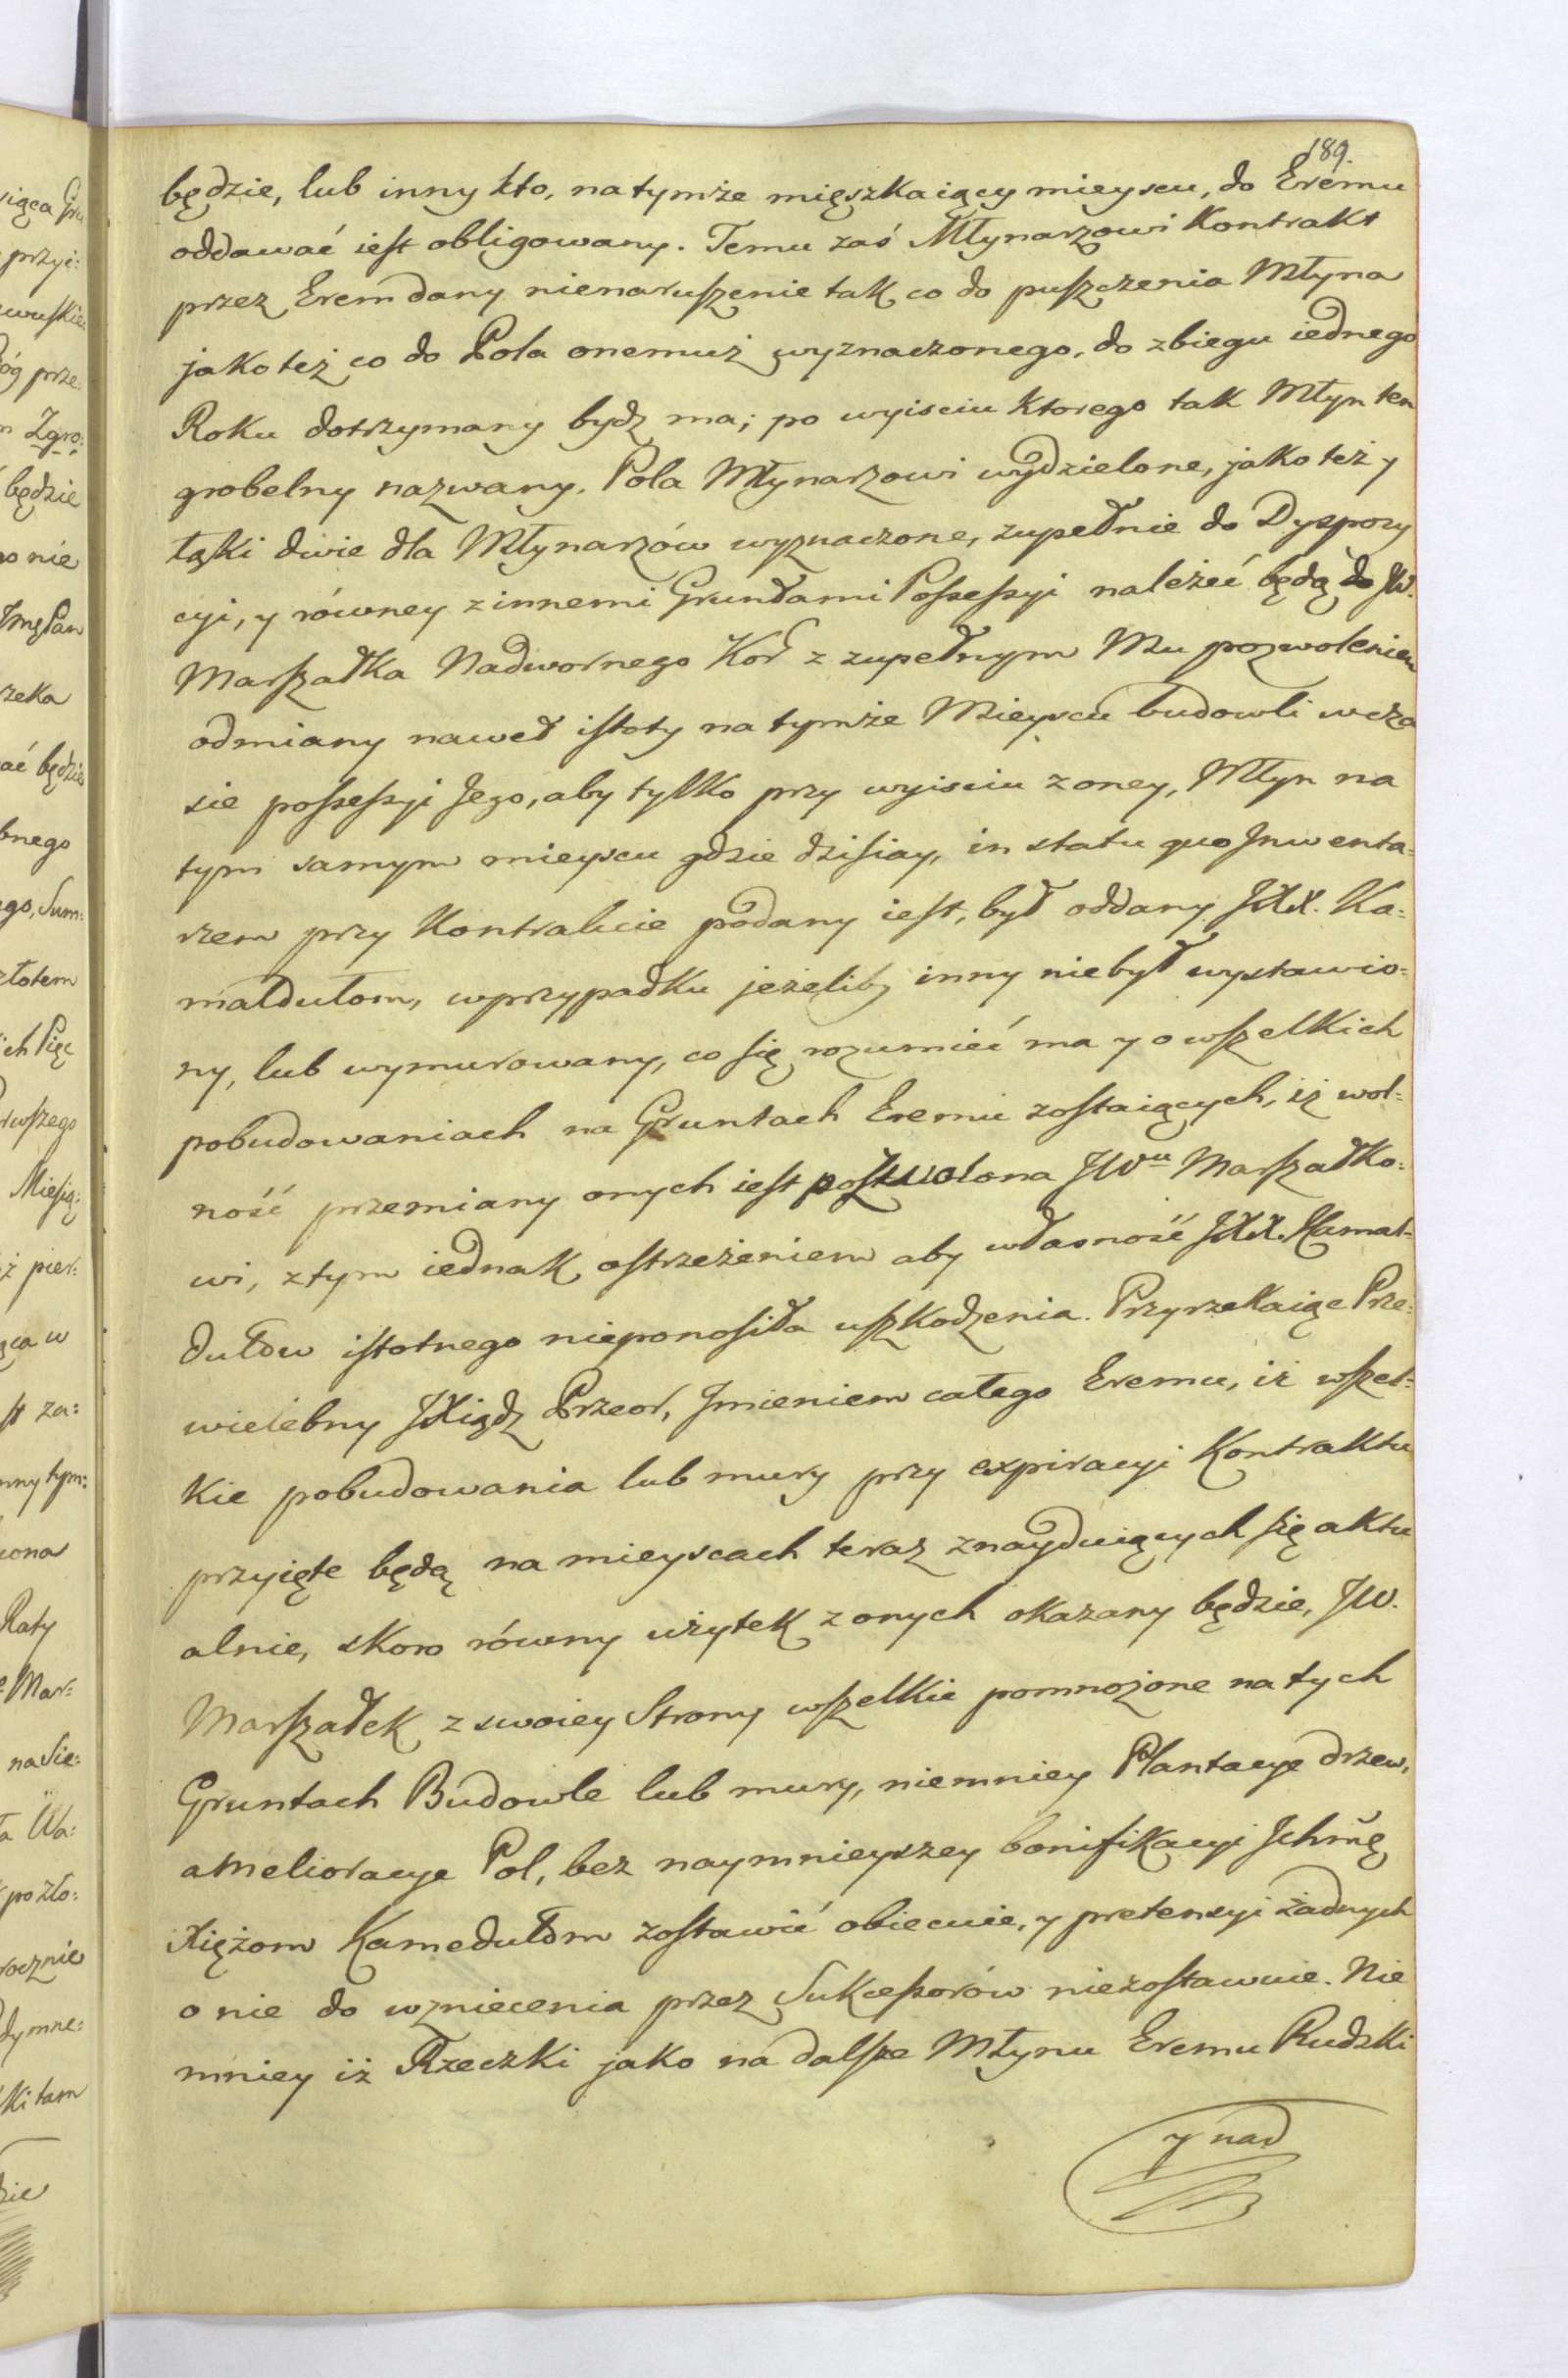 189.
będzie, lub inny kto, na tymże mięszkaiący mieyscu, do Eremu
oddawać iest obligowany. Temu zaś Młynarzowi Kontrakt
przez Erem dany nienaruszenie tak co do puszczenia Młyna
jako też co do Pola onemuż wyznaczonego, do zbiegu iednego
Roku dotrzymany bydz ma; po wyisciu ktorego tak Młyn ten
grobelny nazwany, Pola Młynarzowi wydzielone, jako też y
łąki dwie dla Młynarzów wyznaczone, zupełnie do Dyspozy
cyi, y równey z innemi Gruntami Possessyi należeć będą do JW.
Marszałka Nadwornego Kor z zupełnym Mu pozwoleniem
odmiany nawet istoty na tymże Mieyscu budowli wcza
sie possessyi Jego, aby tylko przy wyisciu z oney, Młyn na
tym samym mieyscu gdzie dzisiay, in statu quo Jnwenta=
rzem przy Kontrakcie podany iest, był oddany JXX. Ka=
maldułom, wprzypadku jeżeliby inny niebył wystawio=
ny, lub wymurowany, co się rozumieć ma y o wszelkich
pobudowaniach na Gruntach Eremu zostaiących, iż wol=
ność przemiany onych iest pozwolona JWu Marszałko=
wi, z tym iednak ostrzeżeniem aby własność JXX. Kamal=
dułów istotnego nieponosiła uszkodzenia. Przyrzekaiąc Prze=
wielebny JXiądz Przeor, Jmieniem całego Eremu, iż wszel=
kie pobudowania lub mury przy expiracyi Kontraktu
przyięte będą na mieyscach teraz znayduiących się aktu
alnie, skoro równy użytek z onych okazany będzie, JW.
Marszałek z swoiey Strony wszelkie pomnożone na tych
Gruntach Budowle lub mury, niemniey Plantacye drzew,
a melioracye Pol, bez naymnieyszey bonifikacyi
Xiężom Kamedułom zostawić obiecuie, y pretensyi żadnych
o nie do wzniecenia przez Sukcessorów niezostawuie. Nie
mniey iż Rzeczki jako na dalsze Młynu Eremu Rudzki
y nad